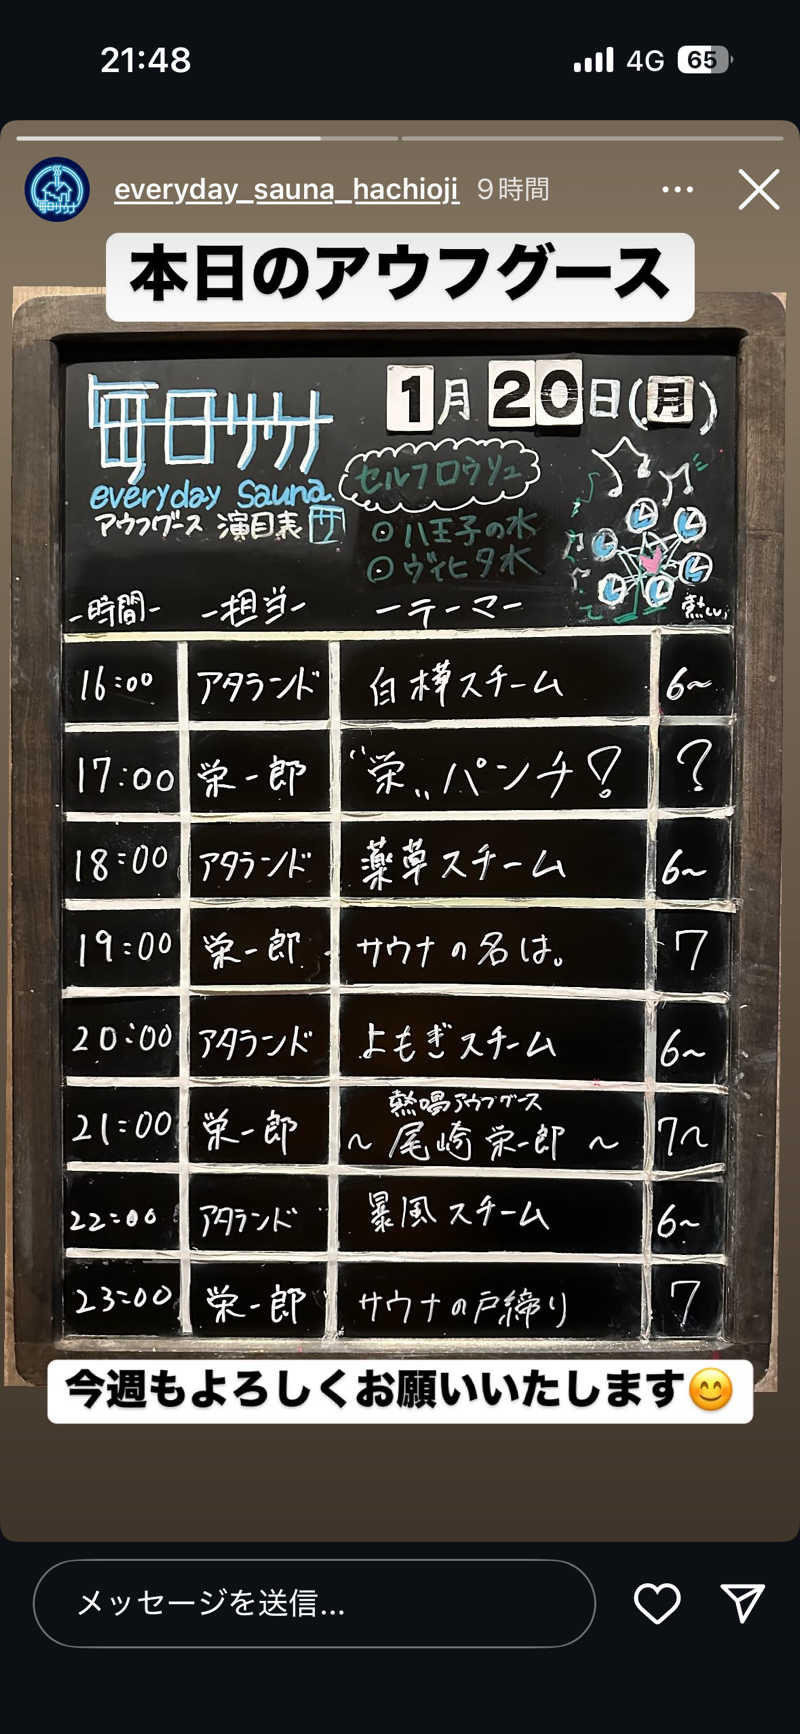 21:48
4G 65
everyday_sauna_hachioji 9時間
本日のアウフグース
毎日サウナ
1月20日(月)
everyday Sauna.
アウフグース 演目表
セルフロウリュ
八王子の水
ヴィヒタ水
-時間- -担当- -テーマー 熱い
16:00 アタランド 白樺スチーム 6~
17:00 栄一郎 "栄„パンチ! ?
18:00 アタランド 薬草スチーム 6~
19:00 栄一郎 サウナの名は。 7
20:00 アタランド よもぎスチーム 6~
21:00 栄一郎 熱唱アウフグース
~ 尾崎 栄一郎 ~ 7~
22:00 アタランド 暴風スチーム 6~
23:00 栄一郎 サウナの戸締り 7
今週もよろしくお願いいたします😊
メッセージを送信...